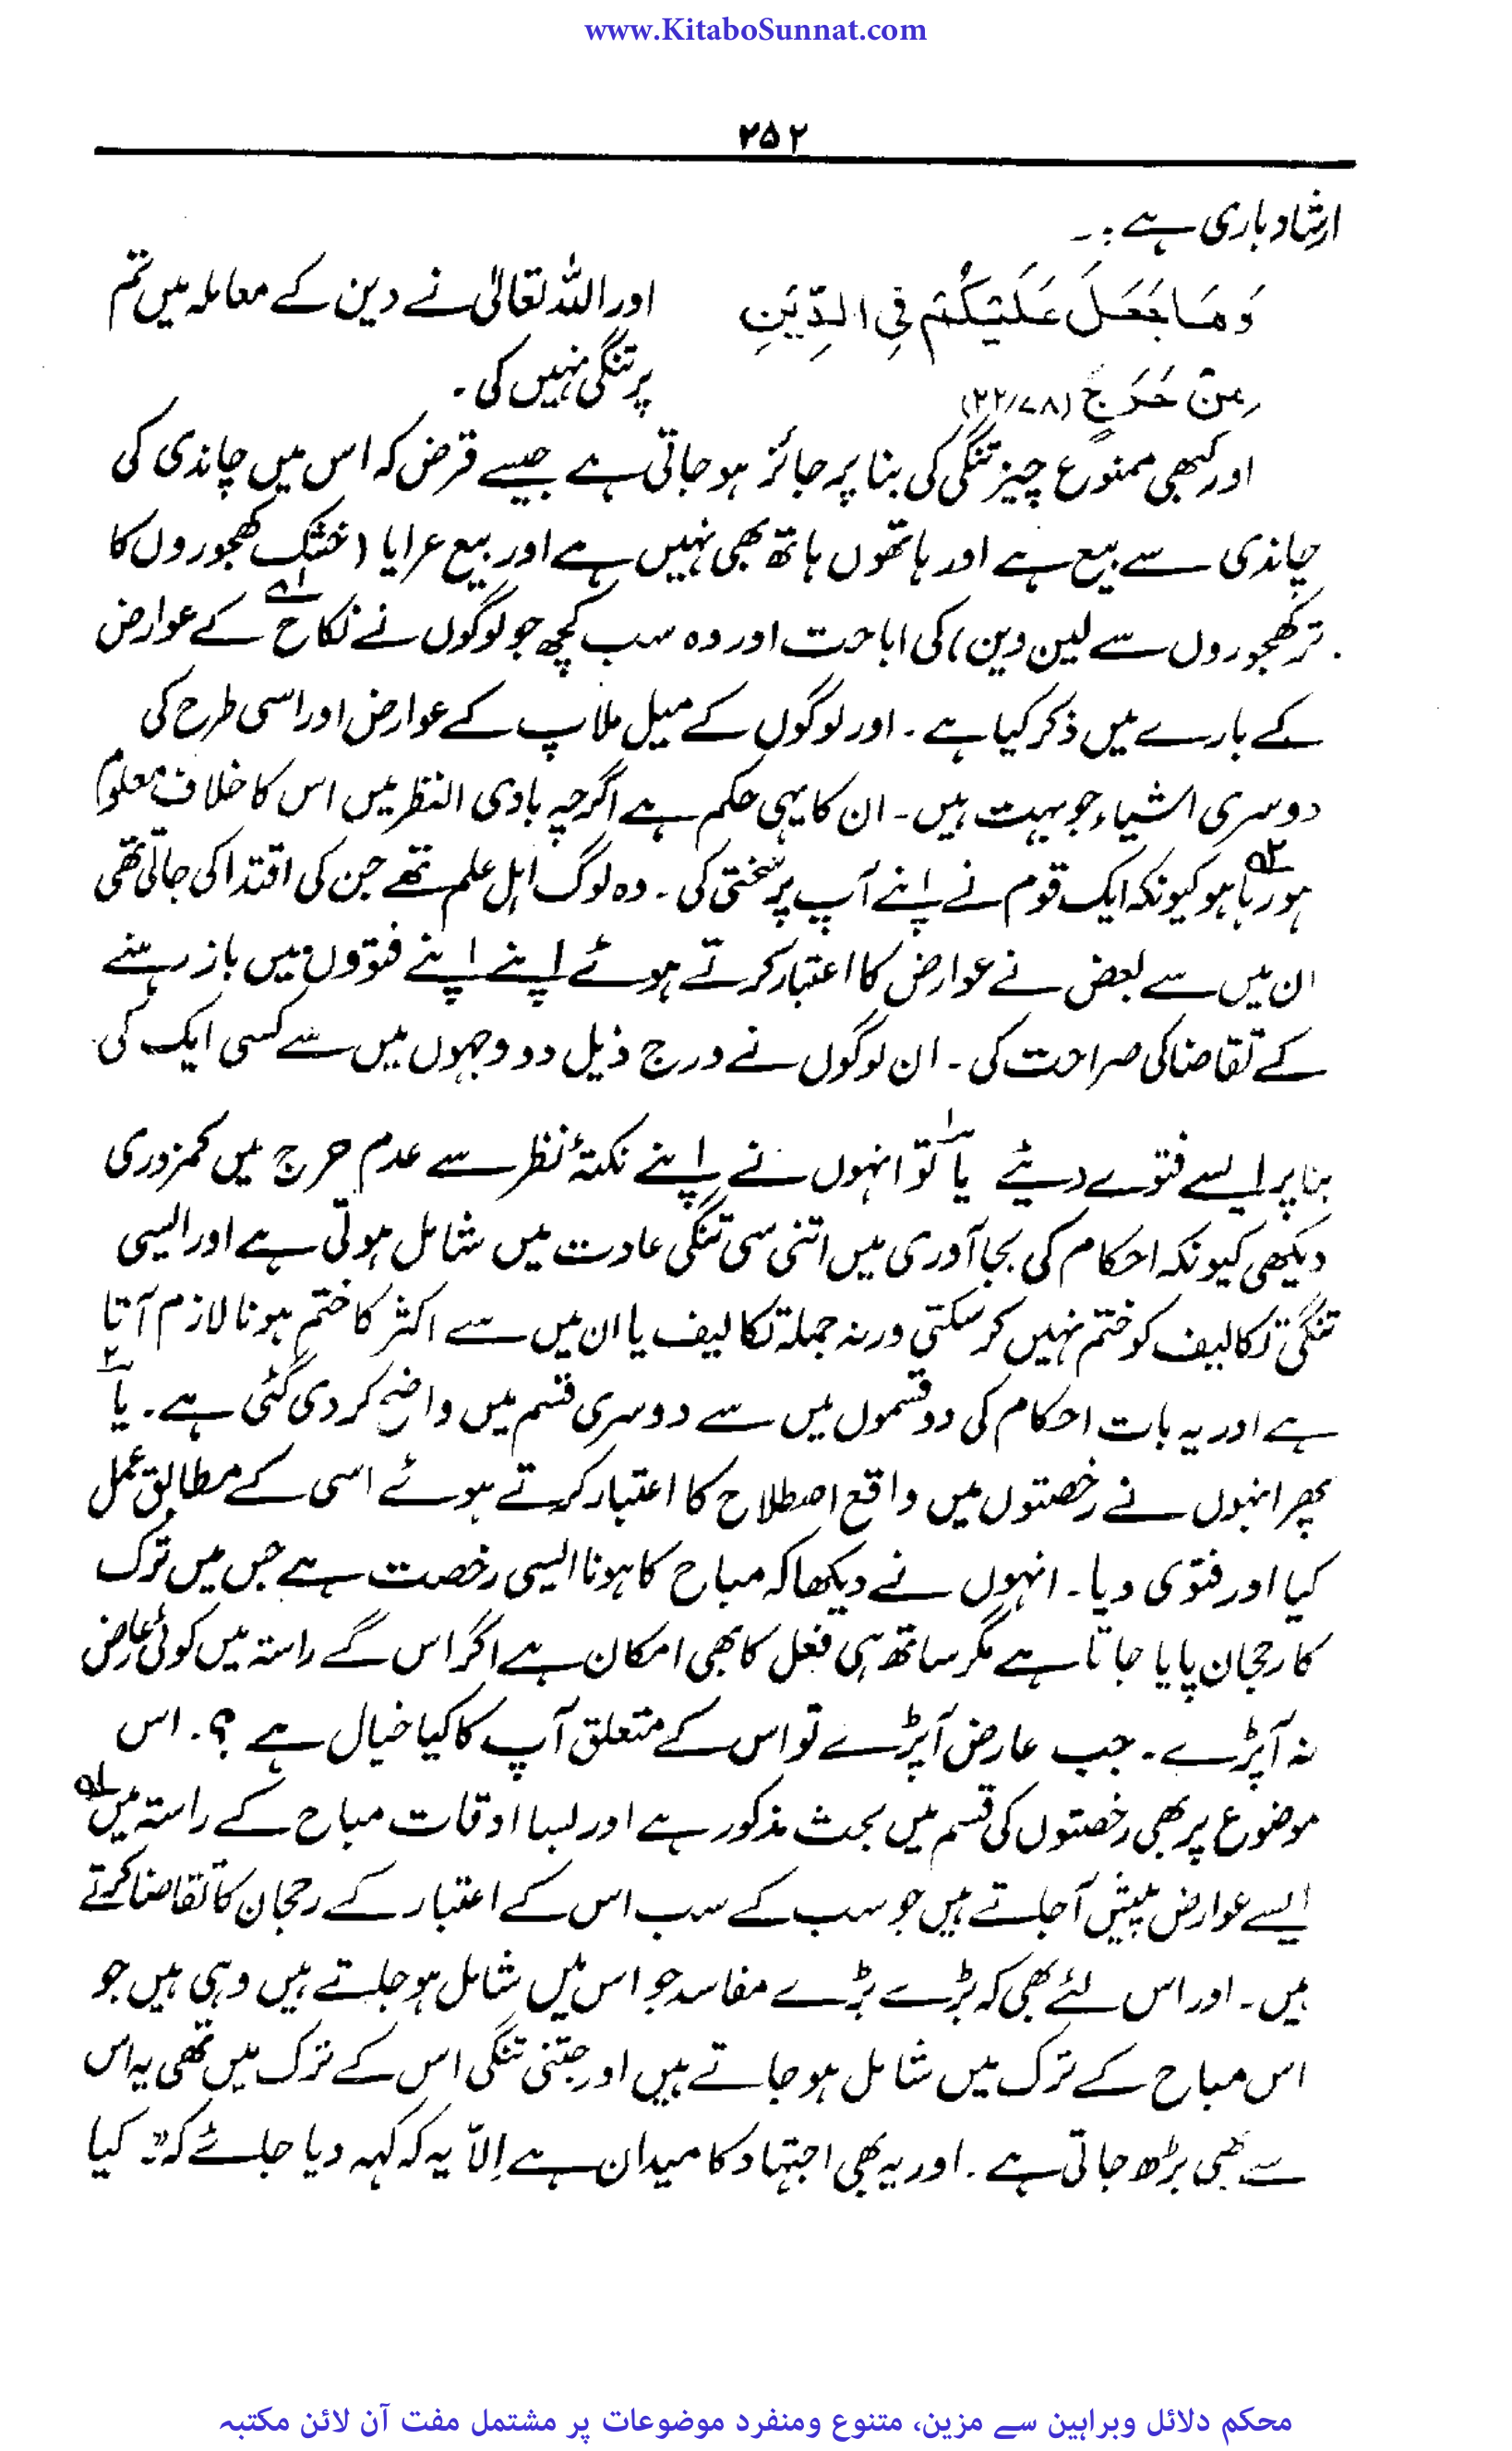 www.KitaboSunnat.com
۲۵۲
ارشاد باری ہے :۔
وَمَا جَعَلَ عَلَیْكُمْ فِی الدِّیْنِ
مِنْ حَرَجٍ (۲۲/۷۸)
اور اللہ تعالیٰ نے دین کے معاملہ میں تم
پر تنگی نہیں کی ۔
اور کبھی ممنوع چیز تنگی کی بنا پر جائز ہو جاتی ہے جیسے قرض کہ اس میں چاندی کی
چاندی سے بیع ہے اور ہاتھوں ہاتھ بھی نہیں ہے اور بیع عرایا (خشک کھجوروں کا
تر کھجوروں سے لین دین) کی اباحت اور وہ سب کچھ جو لوگوں نے نکاح۱ے کے عوارض
کے بارے میں ذکر کیا ہے ۔ اور لوگوں کے میل ملاپ کے عوارض اور اسی طرح کی
دوسری اشیاء جو بہت ہیں ۔ ان کا یہی حکم ہے اگرچہ بادی النظر میں اس کا خلاف معلوم
ہو رہا۲ے ہو کیونکہ ایک قوم نے اپنے آپ پر سختی کی ۔ وہ لوگ اہل علم تھے جن کی اقتدا کی جاتی تھی
ان میں سے بعض نے عوارض کا اعتبار کرتے ہوئے اپنے اپنے فتووں میں باز رہنے
کے تقاضا کی صراحت کی ۔ ان لوگوں نے درج ذیل دو وجہوں میں سے کسی ایک کی
بنا پر ایسے فتوے دیئے یا۱ تو انہوں نے اپنے نکتۂ نظر سے عدم حرج میں کمزوری
دیکھی کیونکہ احکام کی بجا آوری میں اتنی سی تنگی عادت میں شامل ہوتی ہے اور ایسی
تنگی تکالیف کو ختم نہیں کر سکتی ورنہ جملہ تکالیف یا ان میں سے اکثر کا ختم ہونا لازم آتا
ہے اور یہ بات احکام کی دو قسموں میں سے دوسری قسم میں واضح کر دی گئی ہے ۔ یا۲
پھر انہوں نے رخصتوں میں واقع اصطلاح کا اعتبار کرتے ہوئے اسی کے مطابق عمل
کیا اور فتوی دیا ۔ انہوں نے دیکھا کہ مباح کا ہونا ایسی رخصت ہے جس میں ترک
کا رجحان پایا جاتا ہے مگر ساتھ ہی فعل کا بھی امکان ہے اگر اس کے راستہ میں کوئی عارض
نہ آپڑے ۔ جب عارض آپڑے تو اس کے متعلق آپ کا کیا خیال ہے ؟ . اس
موضوع پر بھی رخصتوں کی قسم میں بحث مذکور ہے اور بسا اوقات مباح کے راستہ میں۱ے
ایسے عوارض پیش آجاتے ہیں جو سب کے سب اس کے اعتبار کے رجحان کا تقاضا کرتے
ہیں ۔ اور اس لئے بھی کہ بڑے بڑے مفاسد جو اس میں شامل ہو جاتے ہیں وہی ہیں جو
اس مباح کے ترک میں شامل ہو جاتے ہیں اور جتنی تنگی اس کے ترک میں تھی یہ اس
سے بھی بڑھ جاتی ہے . اور یہ بھی اجتہاد کا میدان ہے اِلاّ یہ کہ کہہ دیا جائے کہ: "کیا
محکم دلائل وبراہین سے مزین، متنوع ومنفرد موضوعات پر مشتمل مفت آن لائن مکتبہ